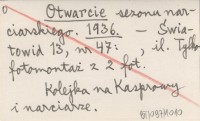 Otwarcie sezonu nar-
ciarskiego. 1936. – Świa-
towid 13, nr 47: , il. Tylko
fotomontaż z 2 fot.
Kolejka na Kasprowy
i narciarze.